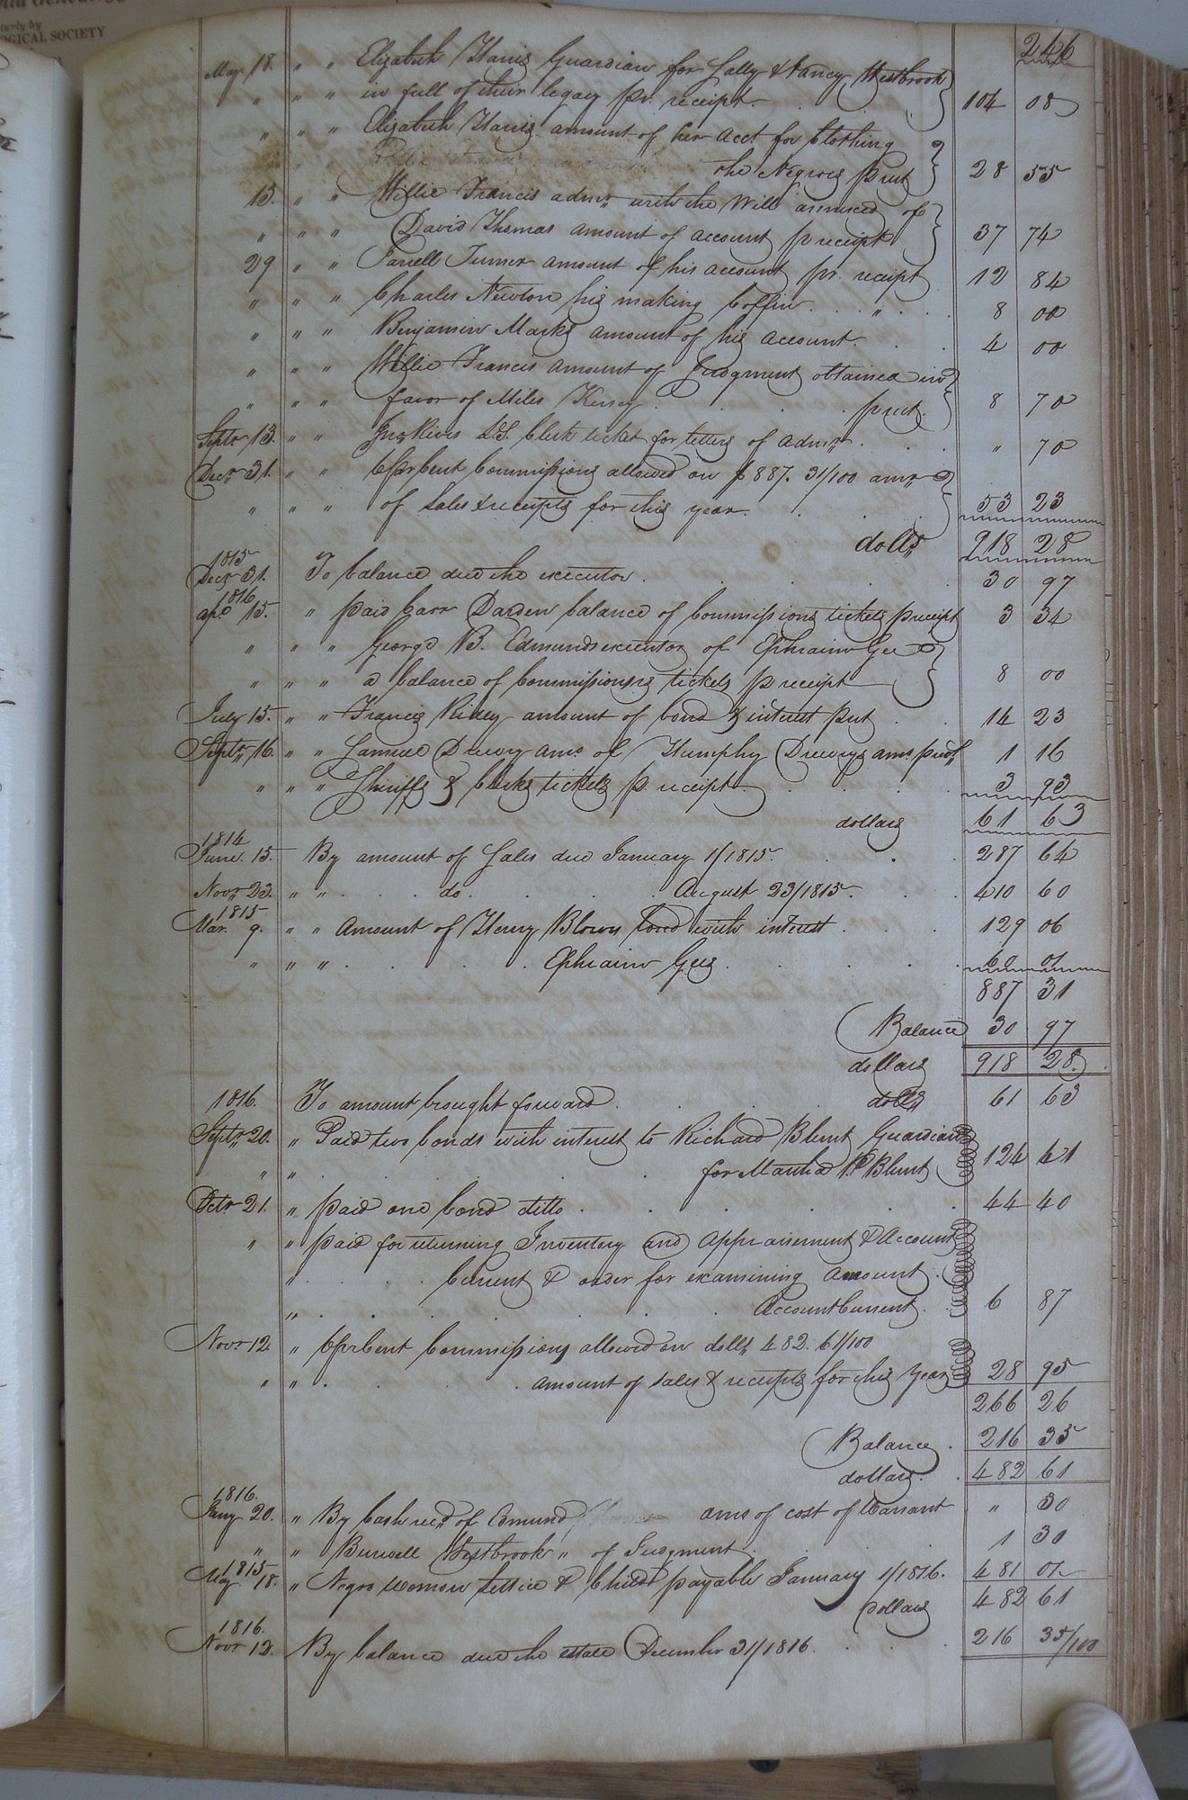 246
May 18. " " Elizabeth Harris Guardian for Sally & Nancy Westbrook
" " " in full of their legacy pr. receipt. 104 08
" " " Elizabeth Harris amount of her acct for Clothing
the Negroes prect 28 55
15. " " Willie Francis admr with the Will annexed of
" " " David Thomas amount of account p receipt 37 74
29 " " Turner amount of his account pr. receipt 12 84
" " " Charles Newton his making Coffin . . . " . . 8 00
" " " Benjamin Marks amount of his account. . . 4 00
" " " Willie Francis amount of Judgment obtained in
" " " favor of Miles . . . prect. 8 70
Septr 13. " " Rives D.S. Clerk ticket for letters of admr. . . " 70
Decr 31. " " 6 pr Cent Commissions allowed on $887. 31/100 amt
" " " of sales & receipts for this year. . . 53 23
dolls 918 28
1815
Decr 31. To balance due the executor. . . . 30 97
1816
apl 15. " paid Carr Darden balance of Commissions tickets p receipt 3 34
" " " George B. Edmunds executor of Ephraim Gee
" " " a balance of Commissioners tickets p receipt 8 00
July 15. " " Francis Ridley amount of bond & interest prect . 14 23
Septr 16. " " Samuel Drewry amt. of Humphy Drewrys amt. 1 16
" " " Sheriffs & Clerks tickets p receipt . . . 3 93
dollars 61 63
1814
June. 15. By amount of Sales due January 1/1815. . . 287 64
Novr 23. " " . . do . . . August 23/1815. . 410 60
1815
Mar. 9. " " Amount of Henry Blows bond with interest . . 129 06
" " " . . . . Ephraim Gees . . . 60 01
887 31
Balance 30 97
dollars 918 28
1816. To amount brought forward . . . dolls 61 63
Septr 20. " Paid two bonds with interest to Richard Blunt Guardian
" " . . . . for Martha P Blunt 124 41
Octr 21. " paid one bond ditto . . . . 44 40
" " paid for returning Inventory and Appraisement & Account
" . . . Current & order for examining Amount .
" . . . . Account Current. 6 87
Novr 12 " 6 pr Cent Commissions allowed on dolls 482. 61/100
" " . . . amount of sales & receipts for this Year 28 95
266 26
Balance . 216 35
dollars . 482 61
1816.
20. " By Cash recd of Edmund amt of cost of Warrant " 30
" " Burwell Westbrook " of Judgment. . . 1 30
1815
May 18. " Negro woman Lettice & Child payable January 1/1816. 481 01
Dollars 482 61
1816.
Novr 12. By balance due the estate December 31/1816. . . 216 35/100